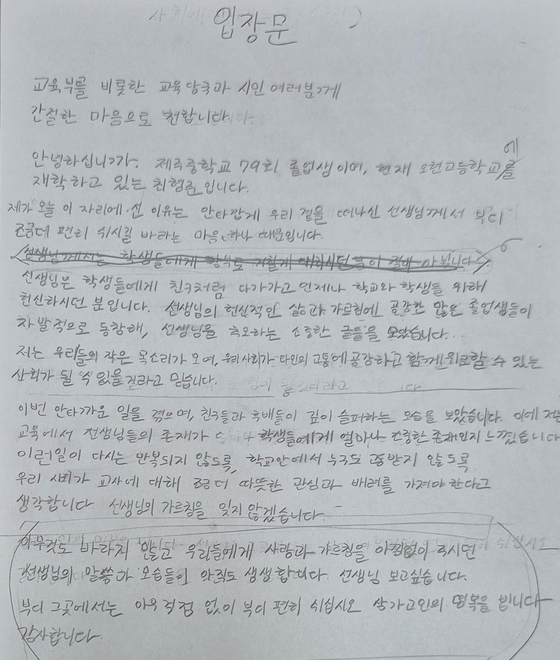 입장문
교육부를 비롯한 교육당국과 시민 여러분께
간절한 마음으로 전합니다.
안녕하십니까. 제주중학교 79회 졸업생이며, 현재 오현고등학교를에
재학하고 있는 입니다.
제가 오늘 이 자리에 선 이유는 안타깝게 우리 곁을 떠나신 선생님께서 부디
조금더 편히 쉬시길 바라는 마음 하나 때문입니다.
선생님께서는 학생들에게 아닙니다
선생님은 학생들에게 친구처럼 다가가고 언제나 학교와 학생들을 위해
헌신하시던 분입니다. 선생님의 헌신적인 삶과 가르침에 공감한 많은 졸업생들이
자발적으로 동참해, 선생님을 추모하는 소중한 글들을 모았습니다.
저는 우리들의 작은 목소리가 모여, 우리 사회가 타인의 고통에 공감하고 함께 위로할 수 있는
사회가 될 수 있을거라고 믿습니다.
이번 안타까운 일을 겪으며, 친구들과 후배들이 깊이 슬퍼하는 모습을 보았습니다. 이에 저는
교육에서 선생님들의 존재가 학생들에게 얼마나 소중한 존재인지 느꼈습니다
이런일이 다시는 반복되지 않도록, 학교안에서 누구도 고통받지 않도록
우리 사회가 교사에 대해 좀 더 따뜻한 관심과 배려를 가져야 한다고
생각합니다 선생님의 가르침을 잊지 않겠습니다.
아무것도 바라지 않고 우리들에게 사랑과 가르침을 아낌없이 주시던
선생님의 말씀과 모습들이 아직도 생생합니다 선생님 보고싶습니다.
부디 그곳에서는 아무 걱정 없이 부디 편히 쉬십시오 삼가고인의 명복을 빕니다
감사합니다.